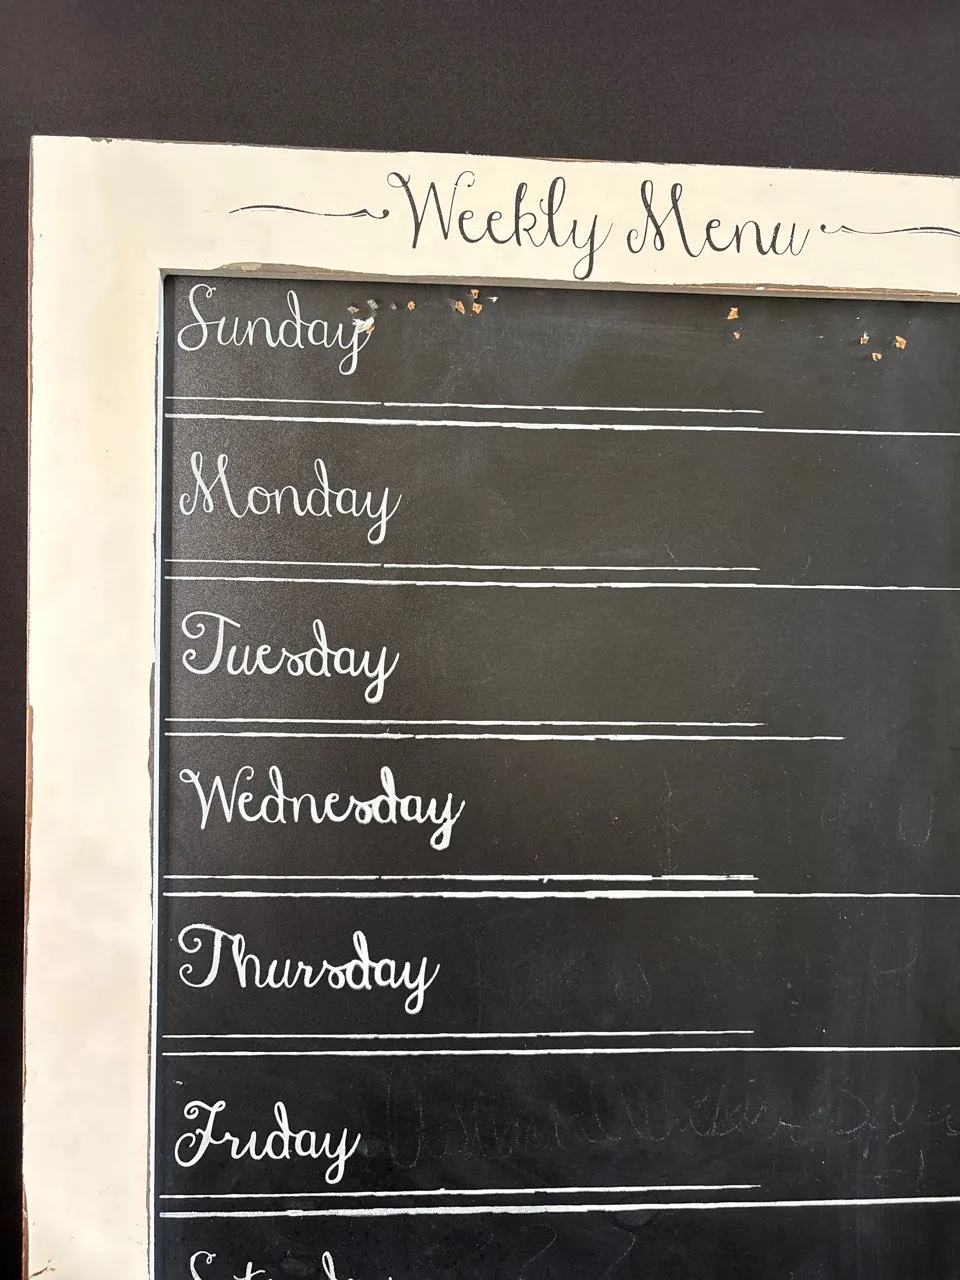 Weekly Menu
Sunday
Monday
Tuesday
Wednesday
Thursday
Friday
Saturday